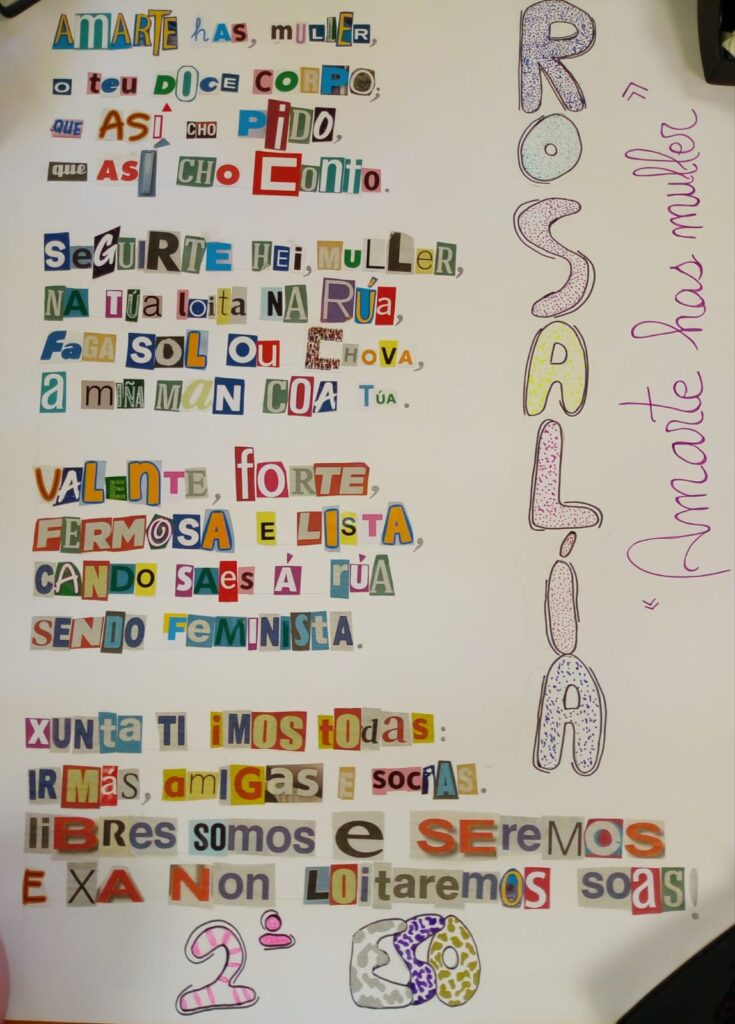 AMARTE has, MULLER,
o teu DOCE CORPO;
QUE ASÍ CHO PIDO,
que ASÍ CHO Contio.
SeGUIRTE HEi, MULLeR,
NA TÚa loita NA RÚa,
FaGA SOL OU CHOVA,
a MIÑA MaN COA TÚA.
VALeNTE, fORTE,
FERMOSA E LISTA,
CANDO SAes Á rÚA
SENDO FeMINISTA.
XUNta TI iMOS todas:
IRMás, amiGas E socIAS.
liBRes somos e SEreMOS
E XA Non LOitaremos soas!
2º ESO
ROSALÍA
"Amarte has muller"